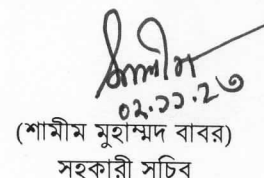 ০২.১১.২৩
(শামীম মুহাম্মদ বাবর)
সহকারী সচিব